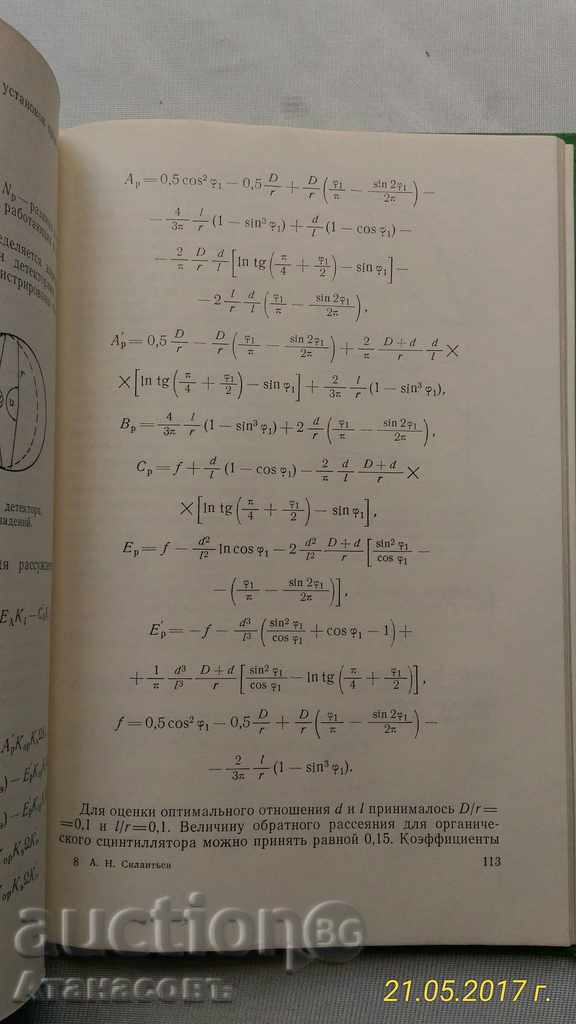 установок
N_p —
работающ
A_p = 0,5 cos² φ₁ − 0,5 D/r + D/r (φ₁/π − sin 2φ₁/2π) −
− 4/3π l/r (1 − sin³ φ₁) + d/l (1 − cos φ₁) −
− 2/π D/r d/l [ln tg (π/4 + φ₁/2) − sin φ₁] −
− 2 l/r d/l (φ₁/π − sin 2φ₁/2π),
A′_p = 0,5 D/r − D/r (φ₁/π − sin 2φ₁/2π) + 2/π D+d/r d/l ×
× [ln tg (π/4 + φ₁/2) − sin φ₁] + 2/3π l/r (1 − sin³ φ₁),
B_p = 4/3π l/r (1 − sin³ φ₁) + 2 d/r (φ₁/π − sin 2φ₁/2π),
C_p = f + d/l (1 − cos φ₁) − 2/π d/l D+d/r ×
× [ln tg (π/4 + φ₁/2) − sin φ₁],
E_p = f − d²/l² ln cos φ₁ − 2 d²/l² D+d/r [sin² φ₁/cos φ₁ −
− (φ₁/π − sin 2φ₁/2π)],
E′_p = −f − d³/l³ (sin² φ₁/cos φ₁ + cos φ₁ − 1) +
+ 1/π d³/l³ D+d/r [sin² φ₁/cos φ₁ − ln tg (π/4 + φ₁/2)],
f = 0,5 cos² φ₁ − 0,5 D/r + D/r (φ₁/π − sin 2φ₁/2π) −
− 2/3π l/r (1 − sin³ φ₁).
Для оценки оптимального отношения d и l принималось D/r=
=0,1 и l/r=0,1. Величину обратного рассеяния для органиче-
ского сцинтиллятора можно принять равной 0,15. Коэффициенты
8 А. Н. Силантьев 113
детектора,
падений.
auction BG
Атанасовъ
21.05.2017 г.